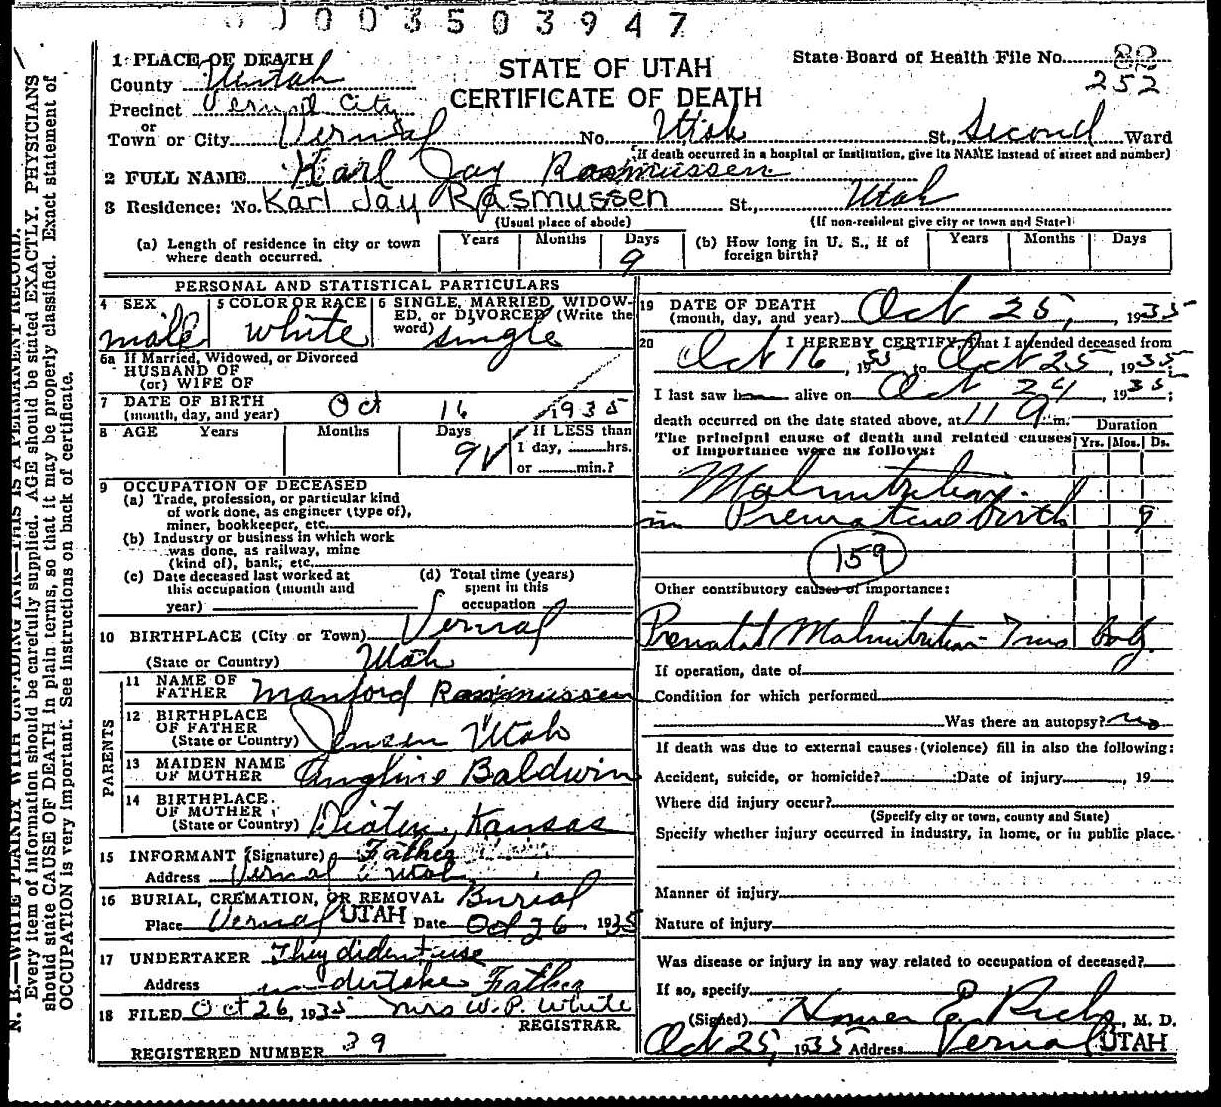 0003503947
1 PLACE OF DEATH
County Uintah
Precinct Vernal City
or
Town or City Vernal No. Utah St. Second Ward
STATE OF UTAH
CERTIFICATE OF DEATH
State Board of Health File No. 
252
(If death occurred in a hospital or institution, give its NAME instead of street and number)
2 FULL NAME Karl Jay Rasmussen
3 Residence: No. Karl Jay Rasmussen St., Utah
(Usual place of abode) (If non-resident give city or town and State)
(a) Length of residence in city or town where death occurred. Years Months Days 9
(b) How long in U. S., if of foreign birth? Years Months Days
PERSONAL AND STATISTICAL PARTICULARS
4 SEX male
5 COLOR OR RACE white
6 SINGLE, MARRIED, WIDOW-
ED, or DIVORCED (Write the
word) single
6a If Married, Widowed, or Divorced
HUSBAND OF
(or) WIFE OF
7 DATE OF BIRTH
(month, day, and year) Oct 16 1935
8 AGE Years Months Days 9 If LESS than
1 day, hrs.
or min.?
9 OCCUPATION OF DECEASED
(a) Trade, profession, or particular kind
of work done, as engineer (type of),
miner, bookkeeper, etc.
(b) Industry or business in which work
was done, as railway, mine
(kind of), bank, etc.
(c) Date deceased last worked at
this occupation (month and
year)
(d) Total time (years)
spent in this
occupation
10 BIRTHPLACE (City or Town) Vernal
(State or Country) Utah
PARENTS
11 NAME OF
FATHER Manford Rasmussen
12 BIRTHPLACE
OF FATHER
(State or Country) Jensen Utah
13 MAIDEN NAME
OF MOTHER Angline Baldwin
14 BIRTHPLACE
OF MOTHER
(State or Country) Kansas
15 INFORMANT (Signature) Father
Address Vernal Utah
16 BURIAL, CREMATION, OR REMOVAL Burial
Place Vernal UTAH Date Oct 26, 1935
17 UNDERTAKER They dident use
Address undertaker Father
18 FILED Oct 26, 1935 Mrs W. P. White
REGISTRAR
REGISTERED NUMBER 39
19 DATE OF DEATH
(month, day, and year) Oct 25, 1935
20 I HEREBY CERTIFY, that I attended deceased from
Oct 16, 1935 to Oct 25, 1935
I last saw h alive on Oct 24, 1935;
death occurred on the date stated above, at 11 a m.
The principal cause of death and related causes
of importance were as follows:
Duration
Yrs. Mos. Ds.
Malnutrition
in Premature birth 9
159
Other contributory causes of importance:
Prenatal Malnutrition
If operation, date of
Condition for which performed
Was there an autopsy? no
If death was due to external causes (violence) fill in also the following:
Accident, suicide, or homicide? Date of injury , 19
Where did injury occur?
(Specify city or town, county and State)
Specify whether injury occurred in industry, in home, or in public place.
Manner of injury
Nature of injury
Was disease or injury in any way related to occupation of deceased?
If so, specify
(Signed) Homer E. Rich, M. D.
Oct 25, 1935 Address Vernal UTAH
N. B.—WRITE PLAINLY WITH UNFADING INK—THIS IS A PERMANENT RECORD.
Every item of information should be carefully supplied. AGE should be stated EXACTLY. PHYSICIANS
should state CAUSE OF DEATH in plain terms, so that it may be properly classified. Exact statement of
OCCUPATION is very important. See instructions on back of certificate.